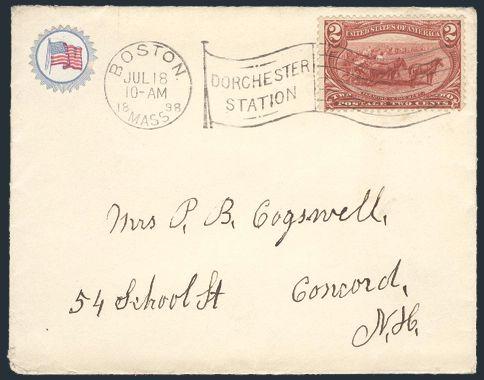 BOSTON
JUL 18
10-AM
18 98
MASS
DORCHESTER
STATION
2 2
UNITED STATES OF AMERICA
POSTAGE TWO CENTS
Mrs P. B. Cogswell,
54 School St Concord,
N.H.